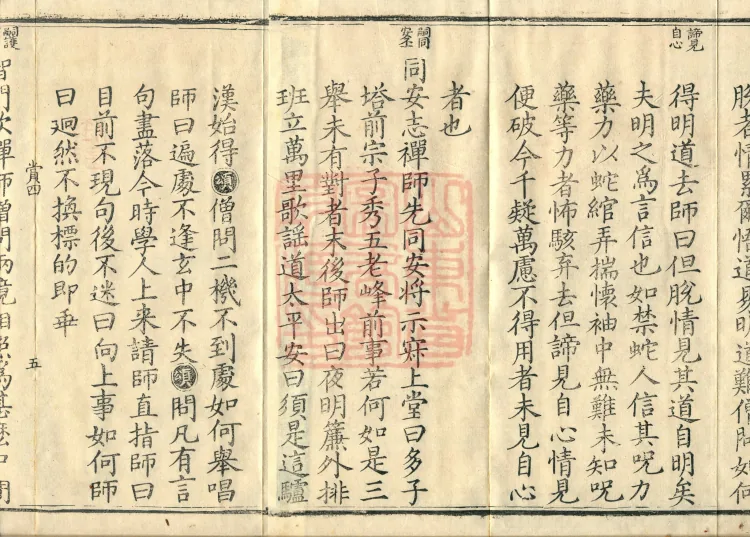 悟道易明道難僧問如何
諦見自心
得明道去師曰但脫情見其道自明矣
夫明之爲言信也如禁蛇人信其呪力
藥力以蛇綰弄揣懷袖中無難未知呪
藥等力者怖駭弃去但諦見自心情見
便破今千疑萬慮不得用者未見自心
者也
嗣同安丕
同安志禪師先同安将示寂上堂曰多子
塔前宗子秀五老峰前事若何如是三
舉未有對者末後師出曰夜明簾外排
班立萬里歌謡道太平安曰須是這驢
漢始得頌僧問二機不到處如何舉唱
師曰遍處不逢玄中不失頌問凡有言
句盡落今時學人上来請師直指師曰
目前不現句後不迷曰向上事如何師
曰廻然不換標的即乖
賞四 五
嗣護
智門欽禪師僧問兩鏡相照爲甚麽中間